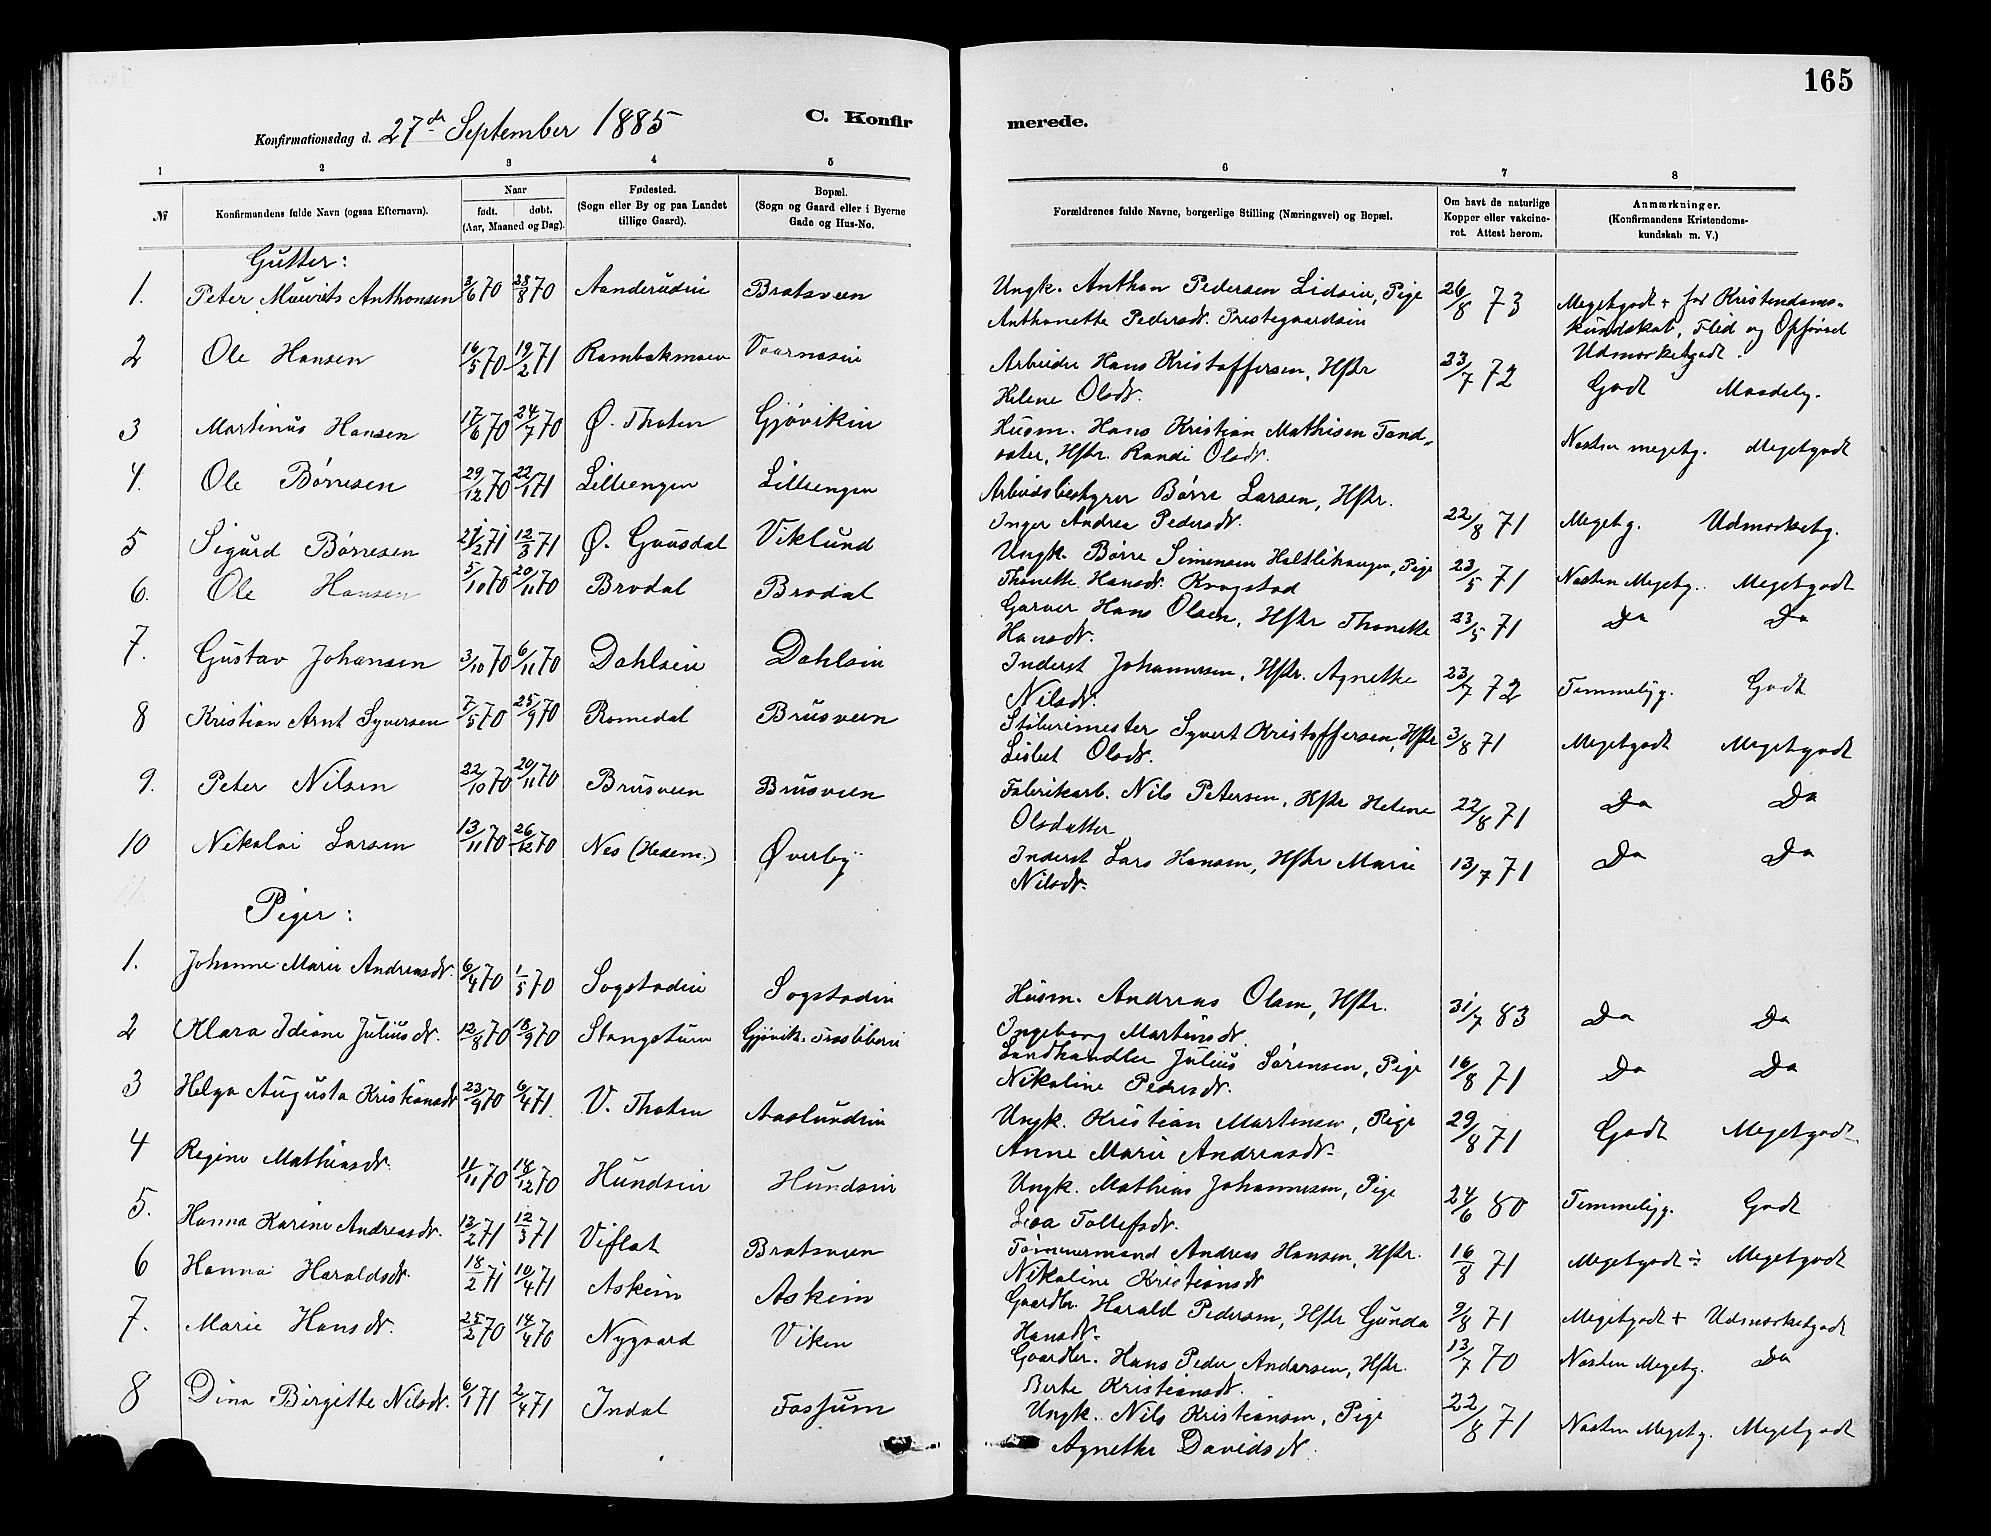 165
Konfirmationsdag d. 27de September 1885
C. Konfir
merede.
1 2 3 4 5 6 7 8
№
Konfirmandens fulde Navn (ogsaa Efternavn).
Naar
født. døbt.
(Aar, Maaned og Dag).
Fødested.
(Sogn eller By og paa Landet
tillige Gaard).
Bopæl.
(Sogn og Gaard eller i Byerne
Gade og Hus-No.
Forældrenes fulde Navne, borgerlige Stilling (Næringsvei) og Bopæl.
Om havt de naturlige
Kopper eller vakcine-
ret. Attest herom.
Anmærkninger.
(Konfirmandens Kristendoms-
kundskab m. V.)
Gutter:
1. Peter Maurits Anthonsen 3/6 70 28/8 70 Aanderudeie Bratsveen
Ungk. Anthon Pedersen Lidseie, Pige
Anthonette Pedersdt. Prestegaardseie
26/8 73 Megetgodt + for Kristendoms-
kundskab, Flid og Opførsel
Udmærketgodt.
2 Ole Hansen 16/5 70 19/2 71
Arbeider Hans Kristoffersen, Hstr
Helene Olsdt.
23/7 72 Godt Maadelig.
3 Martinus Hansen 17/6 70 24/7 70 Ø. Thoten Gjøvikeie
Husm. Hans Kristian Mathisen Tand-
sæter, Hstr. Randi Olsdt.
Næsten megetg. Megetgodt
4. Ole Børresen 29/12 70 22/1 71 Lilleengen Lilleengen
Arbeidsbestyrer Børre Larsen, Hstr.
Inger Andrea Pedersdt.
22/8 71 Megetg. Udmærketg.
5 Sigurd Børresen 21/2 71 12/3 71 Ø. Gausdal Viklund
Ungk. Børre Simensen Haltlihaugen, Pige
Thonette Hansdt. Kragstad
23/5 71 Næsten Megetg. Megetgodt
6. Ole Hansen 5/10 70 20/11 70 Brodal Brodal
Garver Hans Olsen, Hstr Thonette
Hansdt.
23/5 71 Do Do
7. Gustav Johansen 3/10 70 6/11 70 Dahlseie Dahlseie
Inderst Johannesen, Hstr. Agnethe
Nilsdt.
23/7 72 Temmeligg. Godt
8 Kristian Arnt Syversen 7/5 70 25/9 70 Romedal Brusveen
Støberimester Syvert Kristoffersen, Hstr
Lisbet Olsdt.
3/8 71 Megetgodt Megetgodt
9. Peter Nilsen 22/10 70 20/11 70 Brusveen Brusveen
Fabrikarb. Nils Petersen, Hstr Helene
Olsdatter
22/8 71 Do Do
10 Nikolai Larsen 13/11 70 26/12 70 Nes (Hedem.) Øverby
Inderst Lars Hansen, Hstr Marie
Nilsdt.
13/7 71 Do Do
Piger:
1. Johanne Marie Andreasdt. 6/4 70 1/5 70 Sogstadeie Sogstadeie
Husm. Andreas Olsen, Hstr.
Ingeborg Martinsdt.
31/7 83 Do Do
2 Klara Idiane Juliusdt. 12/8 70 18/9 70 Stangstuen Gjøvik.
Landhandler Julius Sørensen, Pige
Nikoline Pedersdt.
16/8 71 Do Do
3 Helga Augusta Kristiansdt 23/9 70 6/4 71. V. Thoten Aaslundseie
Ungk. Kristian Martinsen, Pige
Anne Marie Andreasdt.
29/8 71 Godt Megetgodt.
4 Regine Mathiasdt. 11/11 70 18/12 70 Hundseie Hundseie
Ungk. Mathias Johannesen, Pige
Lisa Tollefsdt.
24/6 80 Temmeligg. Godt
5. Hanna Karine Andreasdt. 13/2 71 12/3 71 Viflat Bratsveen
Tømmermand Andreas Hansen, Hstr.
Nikoline Kristiansdt
16/8 71 Megetgodt ÷ Megetgodt
6 Hanna Haraldsdt. 18/2 71 10/4 71 Askeim Askeim
Gaardbr. Harald Pedersen, Hstr Gunda
Hansdt.
9/8 71 Megetgodt + Udmærketgodt
7. Marie Hansdt. 25/2 70 14/4 70 Nygaard Viken
Gaardbr. Hans Peder Andersen, Hstr.
Berte Kristiansdt.
13/7 70 Næsten Megetg. Do
8 Dina Birgitte Nilsdt. 6/1 71 2/4 71 Indal Fossum
Ungk. Nils Kristiansen, Pige
Agnethe Davidsdt.
22/8 71 Næsten Megetg. Megetgodt